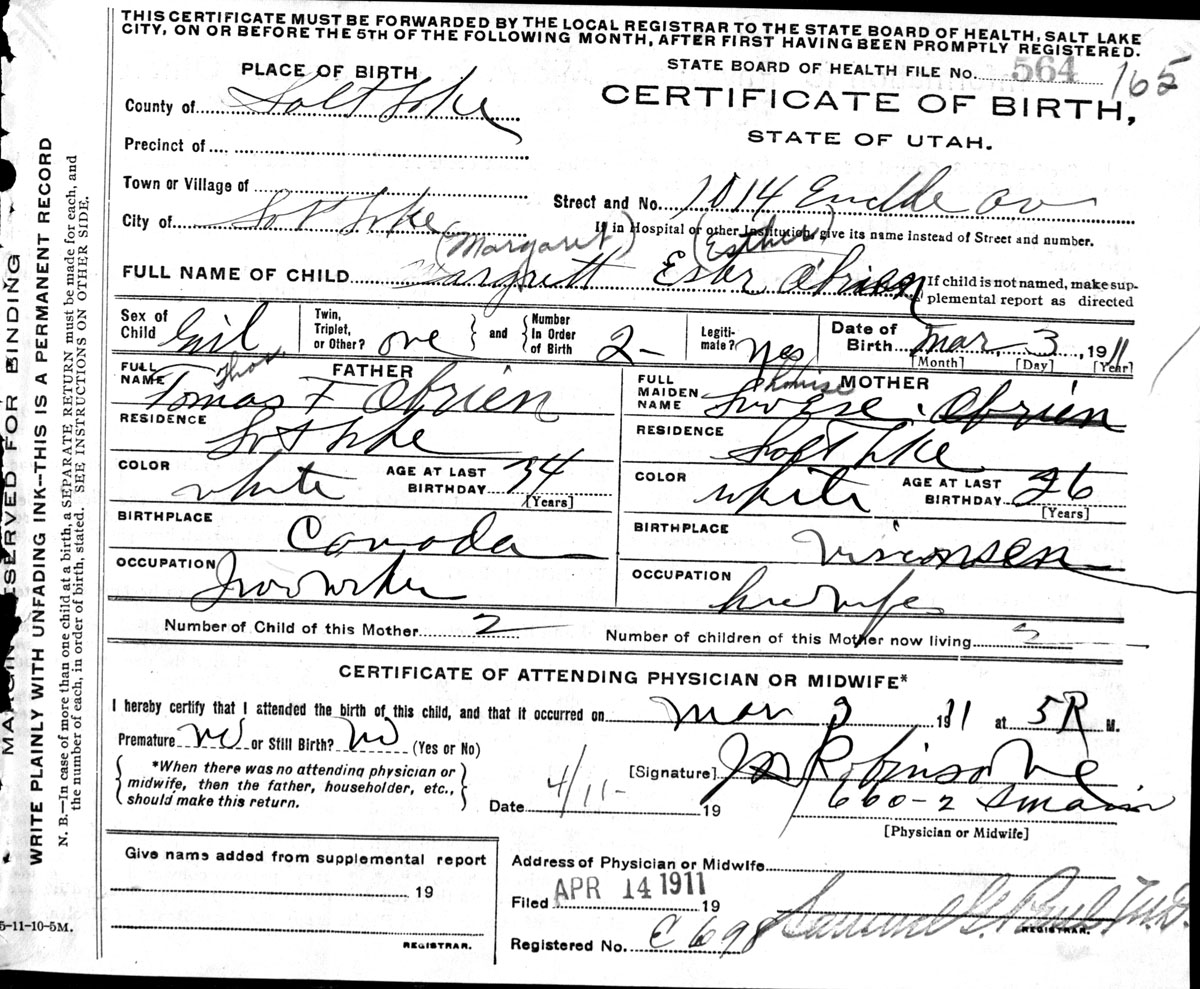 THIS CERTIFICATE MUST BE FORWARDED BY THE LOCAL REGISTRAR TO THE STATE BOARD OF HEALTH, SALT LAKE
CITY, ON OR BEFORE THE 5TH OF THE FOLLOWING MONTH, AFTER FIRST HAVING BEEN PROMPTLY REGISTERED.
STATE BOARD OF HEALTH FILE No. 564 165
PLACE OF BIRTH
CERTIFICATE OF BIRTH,
STATE OF UTAH.
County of Salt Lake
Precinct of
Town or Village of
Street and No. 1014 av
City of Lake
If in Hospital or other Institution, give its name instead of Street and number.
(Margaret) (Esther)
FULL NAME OF CHILD Margrett Ester O'brien
If child is not named, make sup-
plemental report as directed
Sex of Child Girl
Twin, Triplet, or Other? one and Number In Order of Birth 2
Legiti-mate? Yes
Date of Birth Mar 3, 1911
[Month] [Day] [Year]
FATHER
FULL NAME Tomas F Obrien
Thos.
RESIDENCE Lake
COLOR white AGE AT LAST BIRTHDAY 34 [Years]
BIRTHPLACE Canada
OCCUPATION
MOTHER
FULL MAIDEN NAME Obrien
RESIDENCE Salt Lake
COLOR white AGE AT LAST BIRTHDAY 26 [Years]
BIRTHPLACE Visconsen
OCCUPATION
Number of Child of this Mother 2
Number of children of this Mother now living 2
CERTIFICATE OF ATTENDING PHYSICIAN OR MIDWIFE*
I hereby certify that I attended the birth of this child, and that it occurred on Mar 3 1911 at 5 M.
Premature no or Still Birth? no (Yes or No)
*When there was no attending physician or
midwife, then the father, householder, etc.,
should make this return.
[Signature] Robinson
Date 4/11- 19
660-2 S main
[Physician or Midwife]
Give name added from supplemental report
19
REGISTRAR.
Address of Physician or Midwife
Filed APR 14 1911 19
Samuel G. Paul M.D.
REGISTRAR.
Registered No. C 698
MARGIN RESERVED FOR BINDING
WRITE PLAINLY WITH UNFADING INK--THIS IS A PERMANENT RECORD
N. B.—In case of more than one child at a birth, a SEPARATE RETURN must be made for each, and
the number of each, in order of birth, stated. SEE INSTRUCTIONS ON OTHER SIDE.
5-11-10-5M.